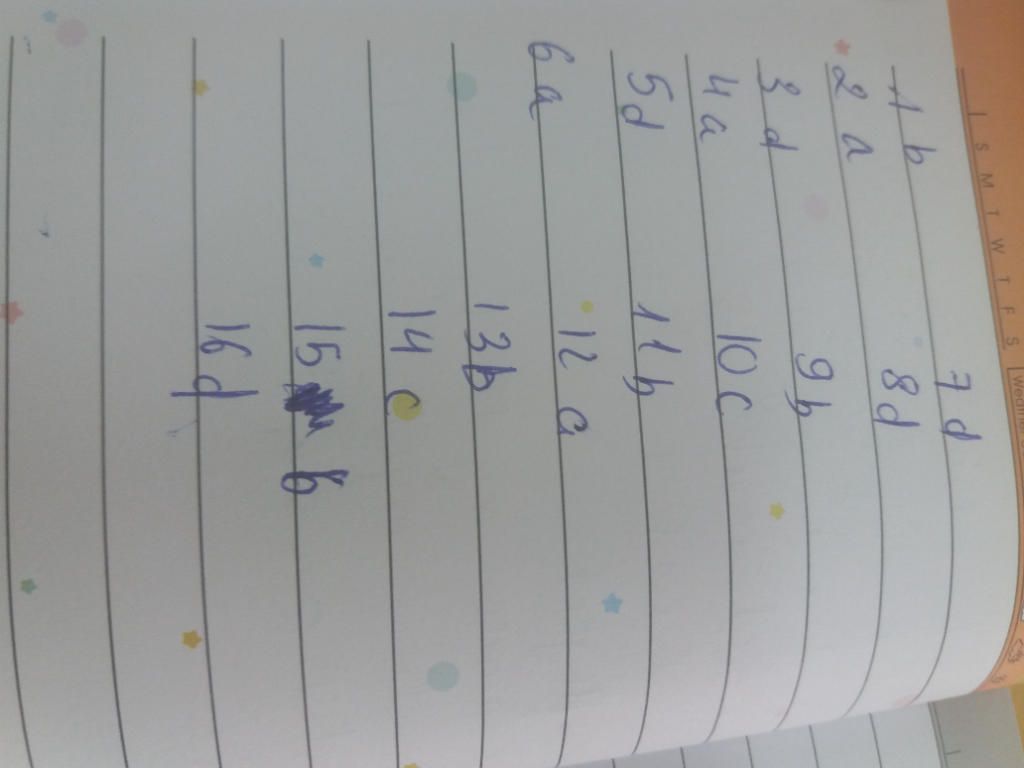 I S M T W T F S
1 b
2 a
3 d
4 a
5 d
6 a
7 d
8 d
9 b
10 c
11 b
12 a
13 b
14 c
15 b
16 d